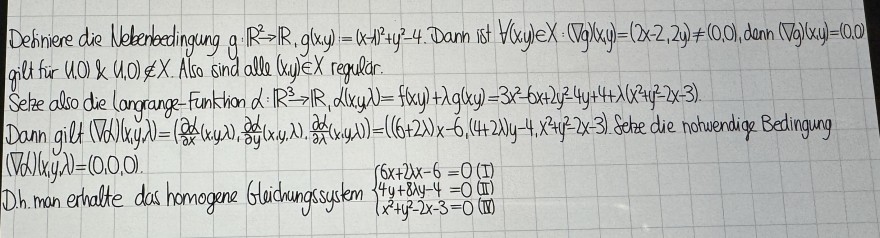 Definiere die Nebenbedingung g: ℝ²→ℝ, g(x,y):=(x-1)²+y²-4. Dann ist ∀(x,y)∈X: (∇g)(x,y)=(2x-2, 2y)≠(0,0), denn (∇g)(x,y)=(0,0)
gilt für (1,0) & (1,0)∉X. Also sind alle (x,y)∈X regulär.
Setze also die Langrange-Funktion L: ℝ³→ℝ, L(x,y,λ)=f(x,y)+λg(x,y)=3x²-6x+2y²-4y+4+λ(x²+y²-2x-3).
Dann gilt (∇L)(x,y,λ)=(∂L/∂x(x,y,λ), ∂L/∂y(x,y,λ), ∂L/∂λ(x,y,λ))=((6+2λ)x-6, (4+2λ)y-4, x²+y²-2x-3). Setze die notwendige Bedingung
(∇L)(x,y,λ)=(0,0,0).
D.h. man erhalte das homogene Gleichungssystem { 6x+2λx-6=0 (I)
4y+8λy-4=0 (II)
x²+y²-2x-3=0 (IV)